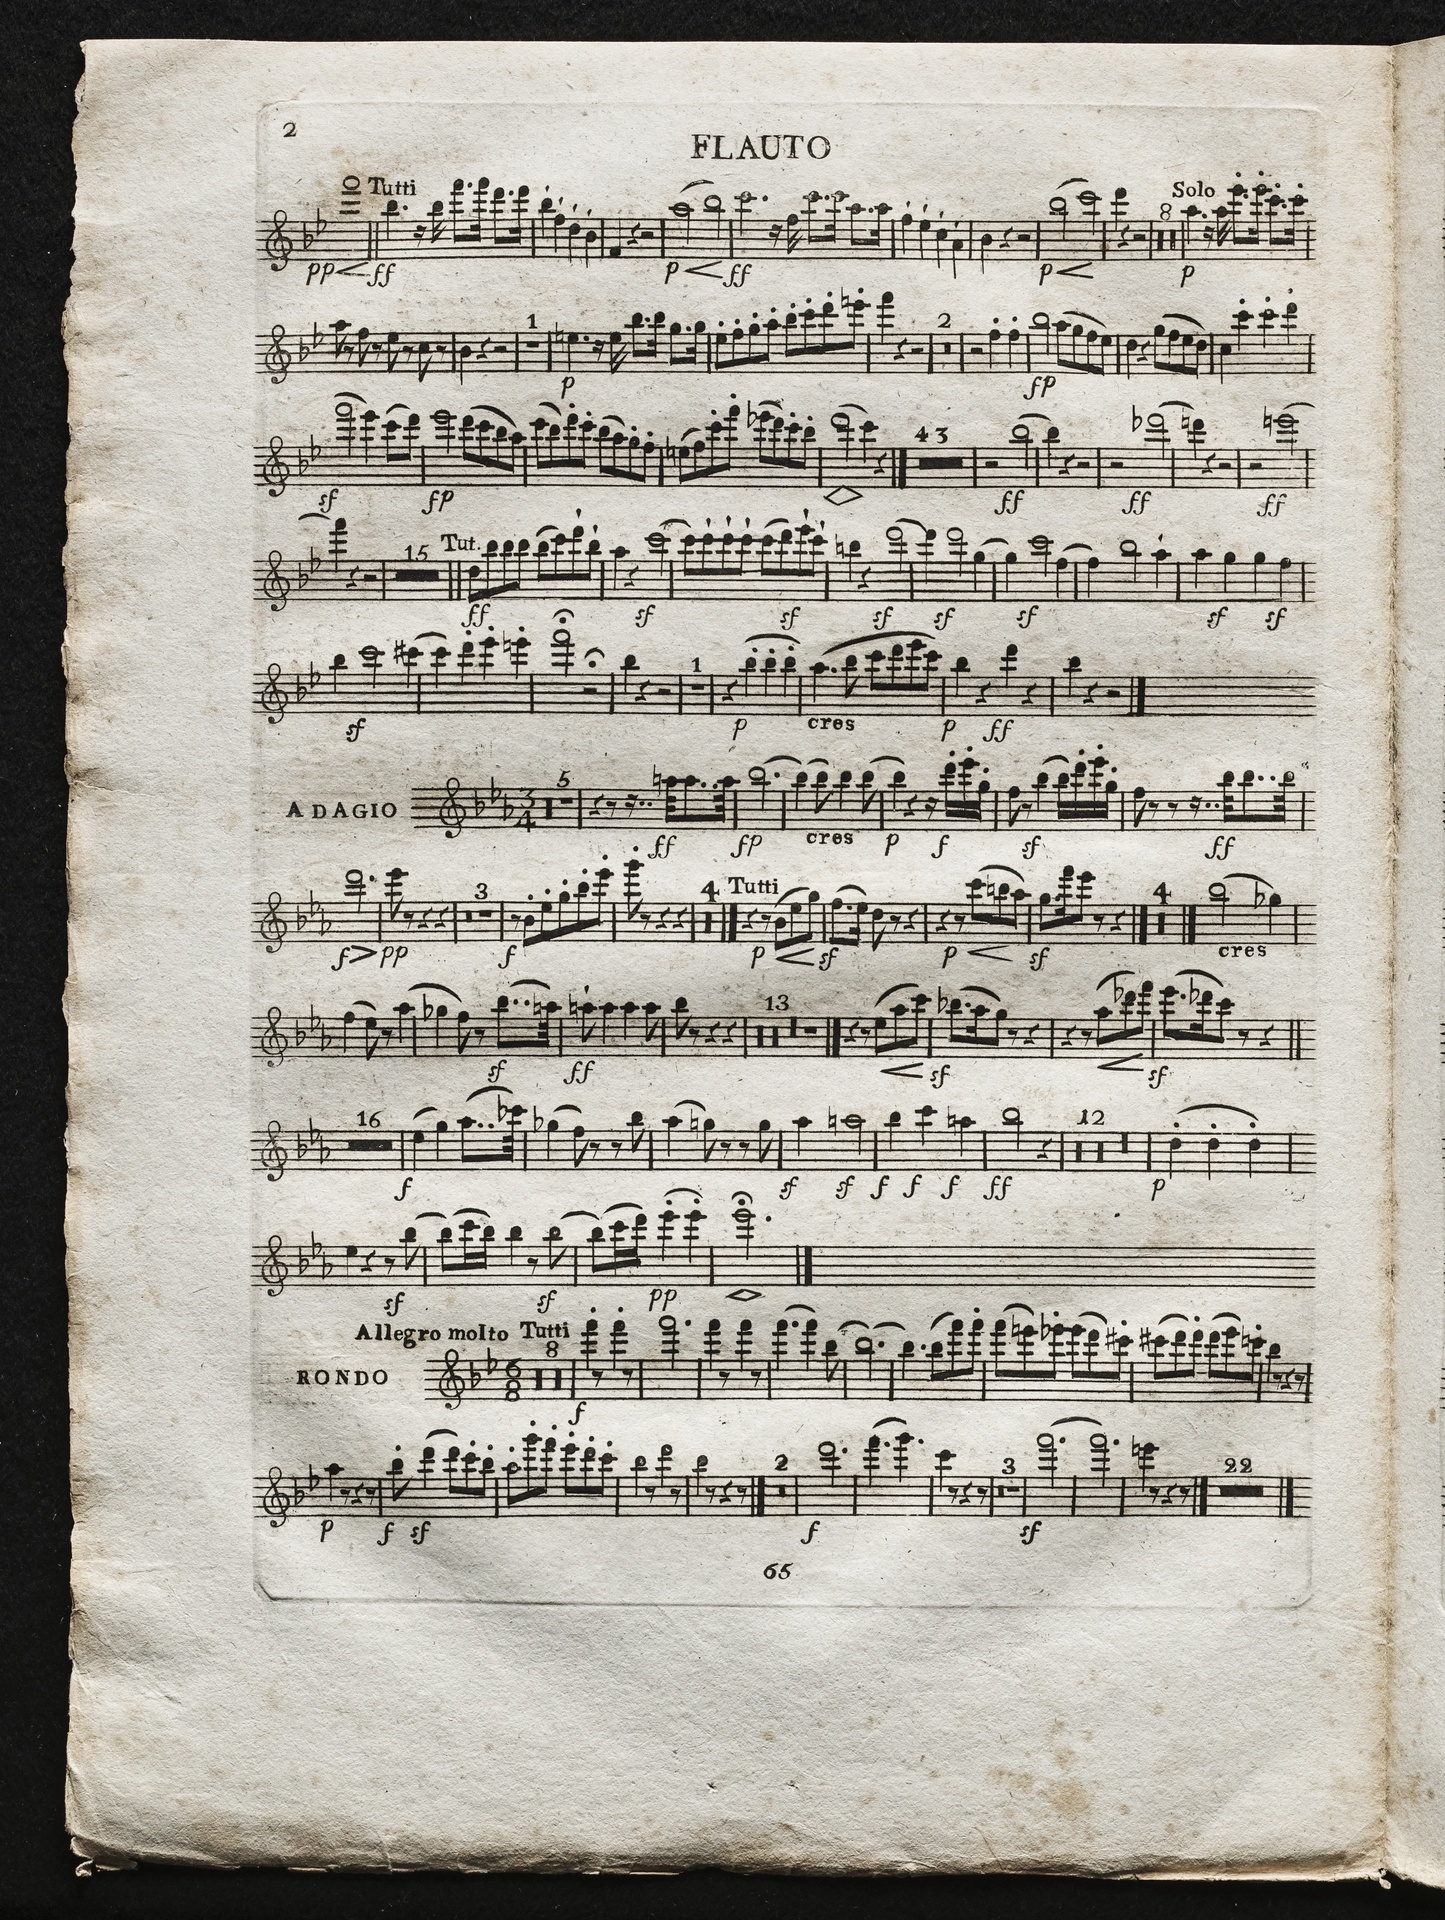 2
FLAUTO
Tutti Solo
8
pp ff p ff p p
1 2
p fp
43
sf fp ff ff ff
15 Tut.
ff sf sf sf sf sf sf sf
1
sf p cres p ff
5
ADAGIO 3 4
ff fp cres p f sf ff
3 4 Tutti 4
f pp f p sf p sf cres
13
sf ff sf sf
16 12
f sf sf f f f ff p
sf sf pp
Allegro molto Tutti
8
RONDO 6 8
f
2 3 22
p f sf f sf
65